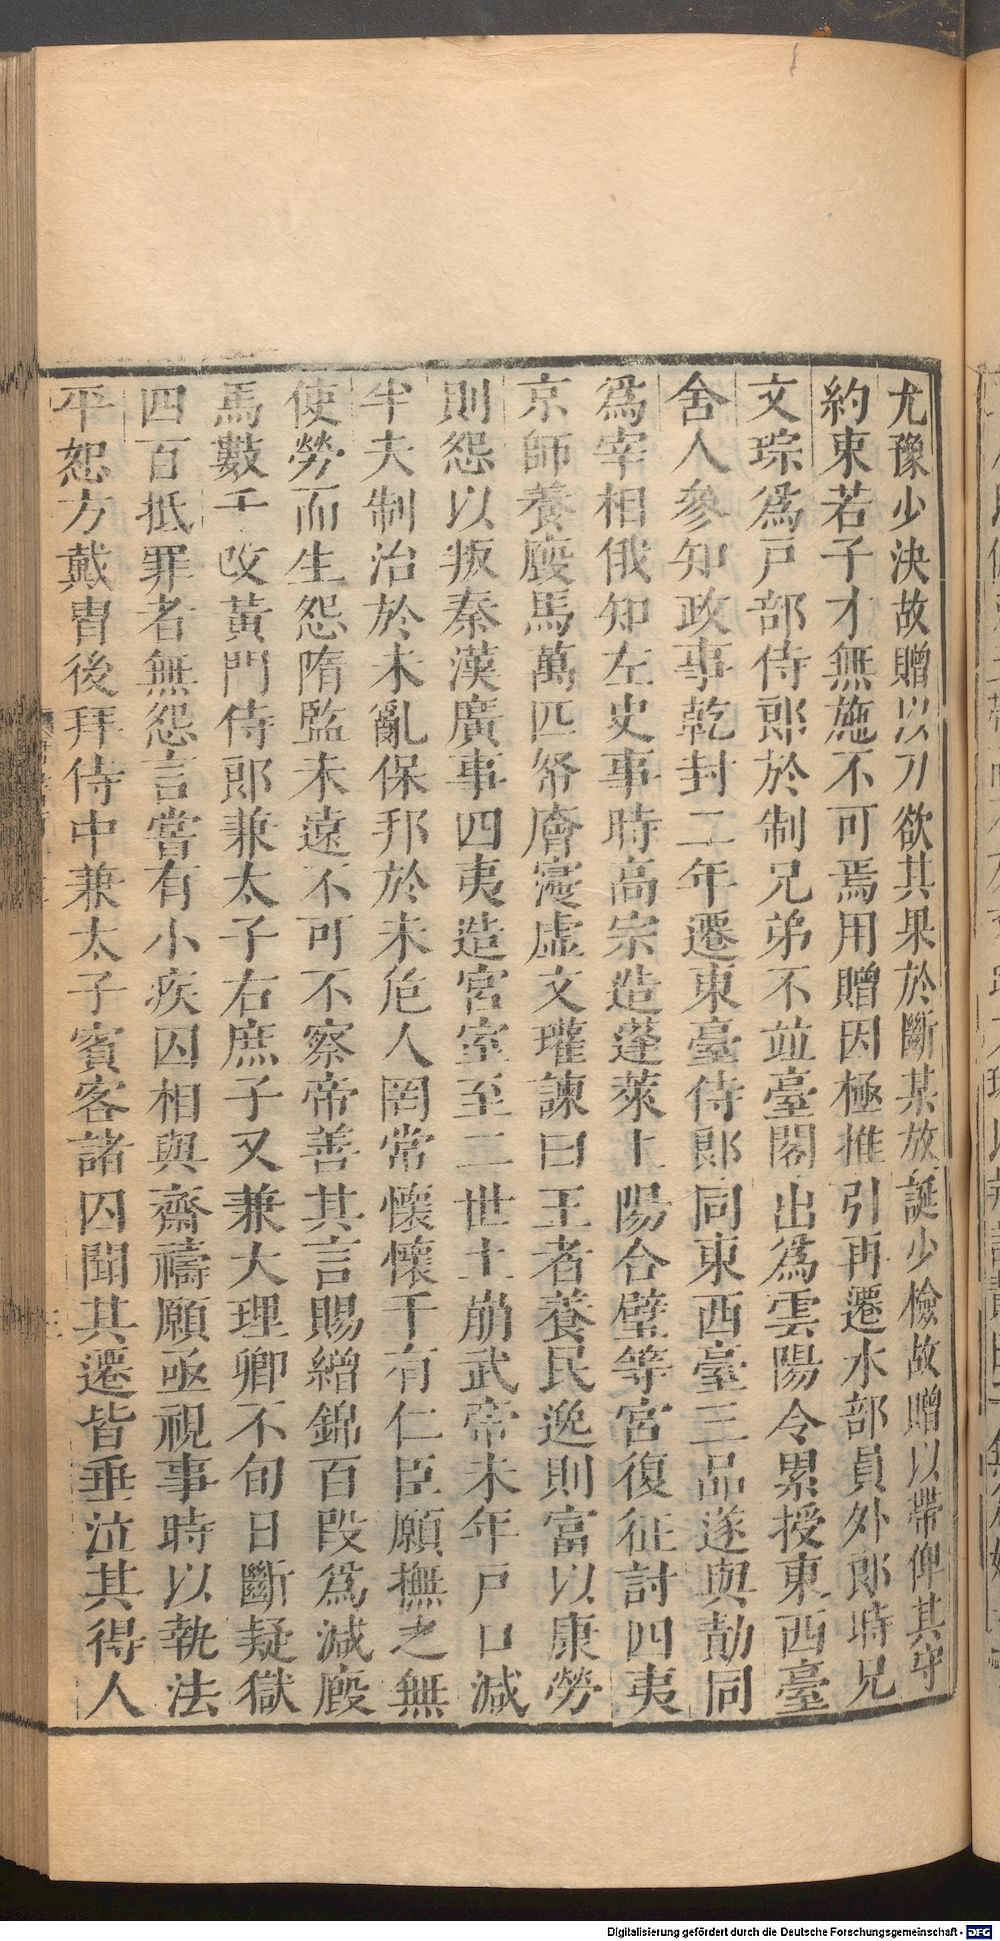 尤豫少決故贈以刀欲其果於斷某放誕少檢故贈以帶俾其守
約束若子才無施不可焉用贈因極推引再遷水部員外郎時兄
文琮爲戸部侍郎於制兄弟不竝臺閣出爲雲陽令累授東西臺
舍人參知政事乾封二年遷東臺侍郎同東西臺三品遂與勣同
爲宰相俄知左史事時高宗造蓬萊上陽合璧等宮復征討四夷
京師養廏馬萬匹帑廥寖虛文瓘諫曰王者養民逸則富以康勞
則怨以叛秦漢廣事四夷造宮室至二世土崩武帝末年戸口減
半夫制治於未亂保邦於未危人罔常懷懷于有仁臣願撫之無
使勞而生怨隋監未遠不可不察帝善其言賜繒錦百段爲減廏
馬數千改黃門侍郎兼太子右庶子又兼大理卿不旬日斷疑獄
四百抵罪者無怨言嘗有小疾囚相與齋禱願亟視事時以執法
平恕方戴胄後拜侍中兼太子賓客諸囚聞其遷皆垂泣其得人
Digitalisierung gefördert durch die Deutsche Forschungsgemeinschaft - DFG